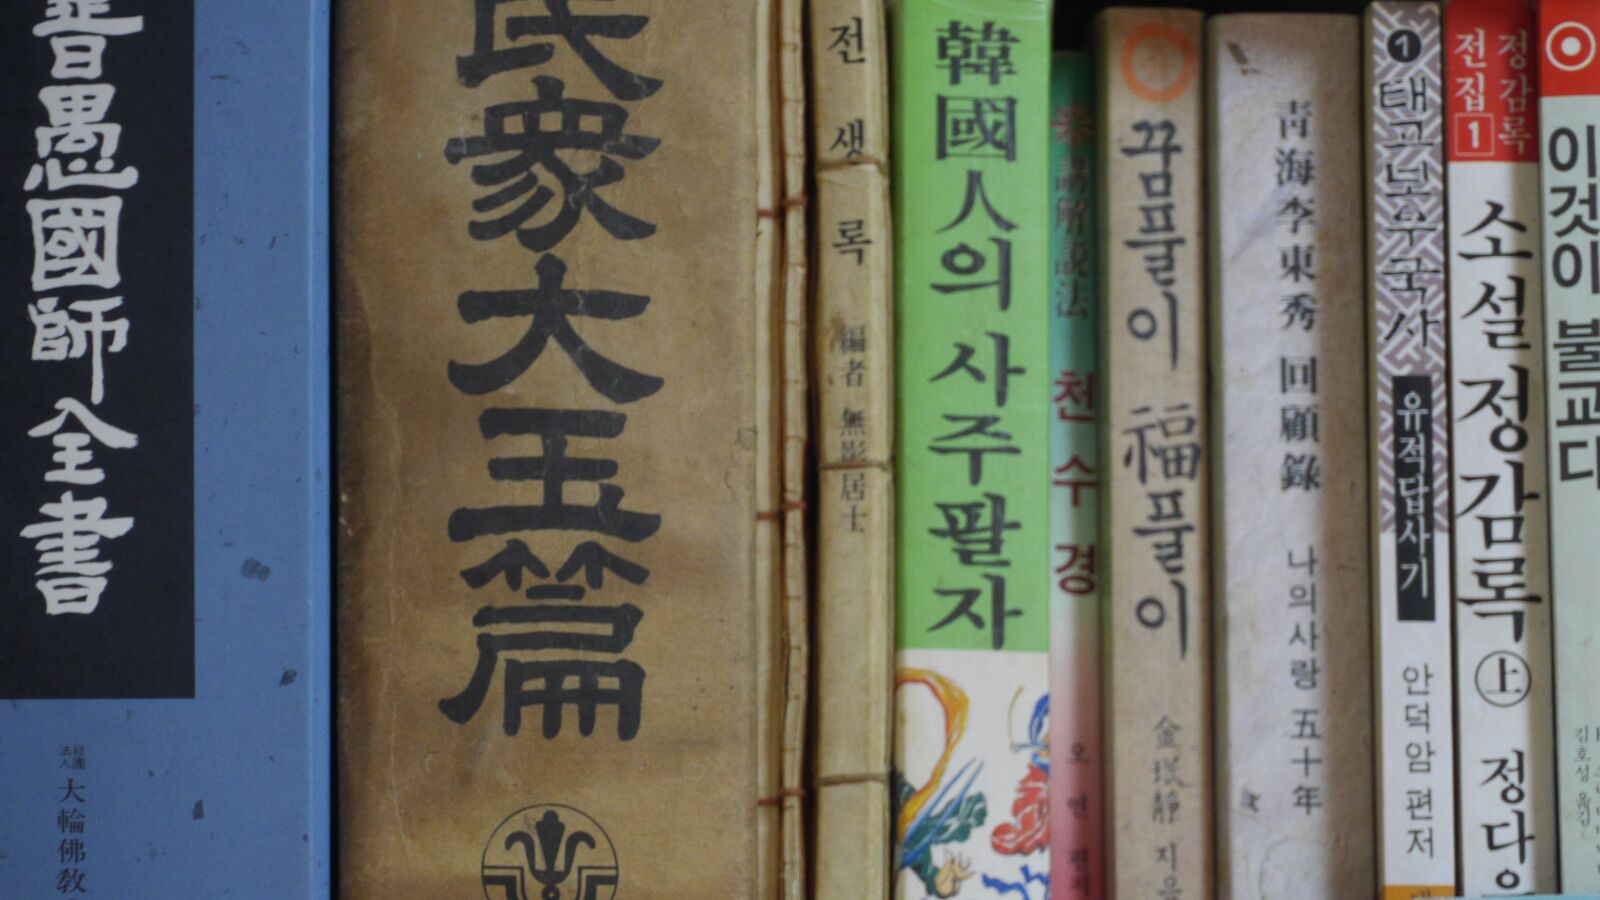 普愚國師全書
社團
法人
大輪佛敎
民衆大玉篇
전생록 編者 無影居士
韓國人의 사주팔자
講解說法
천수경
오
꿈풀이 福풀이
金
靜 지음
靑海李東秀 回顧錄 나의사랑 五十年
1 태고보우국사
유적답사기
안덕암 편저
정감록
전집 1
소설 정감록 上
정당
이것이 불교다
김호성 옮김